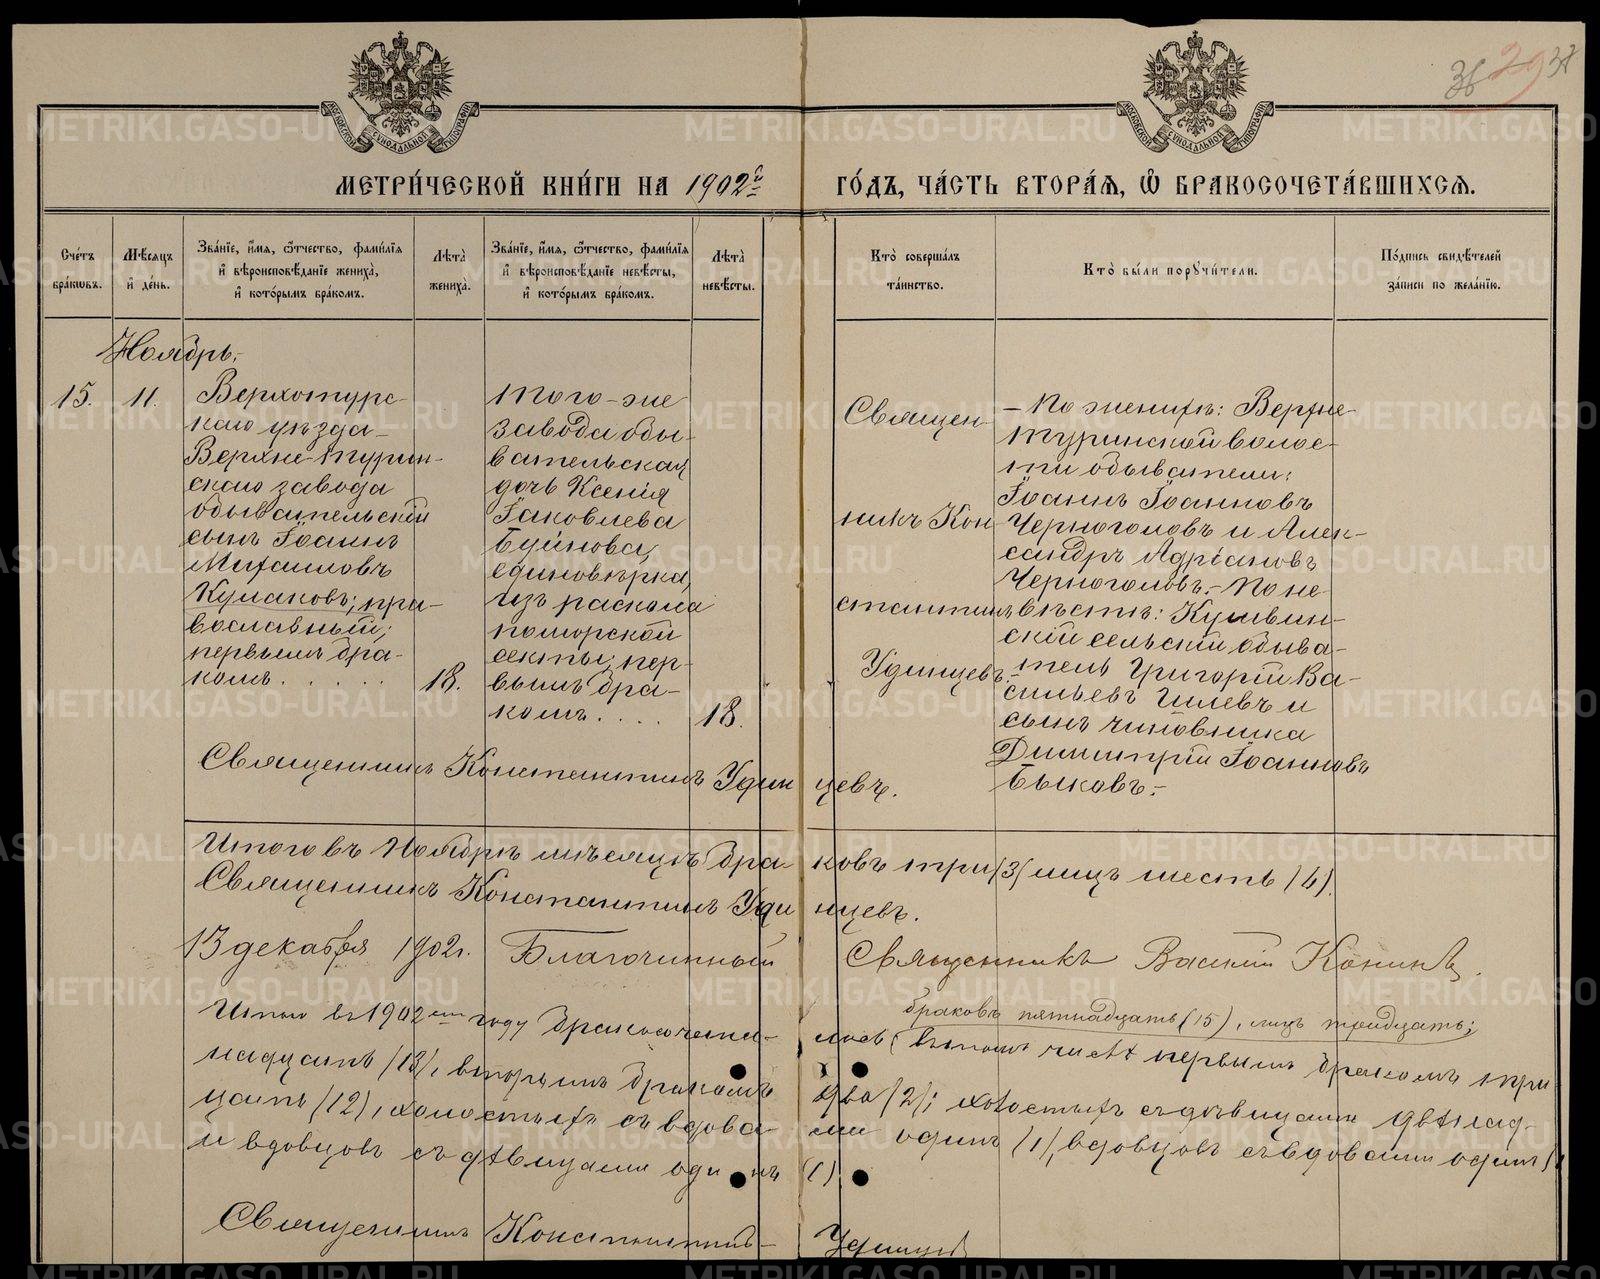 36 29 37
МЕТРИ́ЧЕСКОЙ КНИ́ГИ НА 1902й ГО́ДЪ, ЧА́СТЬ ВТОРА́Я, Ѽ БРАКОСОЧЕТА́ВШИХСЯ.
Сче́тъ бра́кѡвъ.
Мѣ́сяцъ и҆ де́нь.
Зва́нїе, и҆́мя, ѻ҆́тчество, фами́лїя и҆ вѣроисповѣ́данїе жениха̀, и҆ кото́рымъ бра́комъ.
Лѣта̀ жениха̀.
Зва́нїе, и҆́мя, ѻ҆́тчество, фами́лїя и҆ вѣроисповѣ́данїе невѣ́сты, и҆ кото́рымъ бра́комъ.
Лѣта̀ невѣ́сты.
Кто̀ соверша́лъ та́инство.
Кто̀ бы́ли порꙋчи́тели.
По́дпись свидѣ́телей за́писи по жела́нїю.
Ноябрь.
15.
11.
Верхотурс-
каго уѣзда
Верхне-турин-
скаго завода
обывательскій
сынъ Іоаннъ
Михаиловъ
Кумаковъ; пра-
вославный;
первымъ бра-
комъ. . . . . .
18.
того-же
завода обы-
вательская
дочь Ксенія
Іаковлева
Буйнова,
единовѣрка,
изъ раскола
поморской
секты; пер-
вымъ бра-
комъ. . . .
18.
Священ-
никъ Кон-
стантинъ
Удинцевъ.
– По женихѣ: Верхне-
туринской волос-
ти обыватели:
Іоаннъ Іоанновъ
Черноголовъ и Алек-
сандръ Адріановъ
Черноголовъ. – По не-
вѣстѣ: Кушвин-
скій сельскій обыва-
тель Григорій Ва-
сильевъ Шлевъ и
сынъ чиновника
Димитрій Іоанновъ
Быковъ. –
Священникъ Константинъ Удинцевъ.
Итого въ Ноябрѣ мѣсяцѣ браковъ три (3) лицъ шесть (6).
Священникъ Константинъ Удинцевъ.
13 декабря 1902г. Благочинный Священникъ Василій Конинъ.
браковъ пятнадцать (15), лицъ тридцать;
Итого въ 1902ом году бракосочета-лось (въ томъ числѣ первымъ бракомъ три-
надцать (13), вторымъ бракомъ два (2); холостыхъ съ дѣвицами двѣнад-
цать (12), холостыхъ съ вдовами одинъ (1), вдовцовъ съ вдовами одинъ (1
и вдовцовъ съ дѣвицами одинъ (1)
Священникъ Константинъ Удинцевъ
METRIKI.GASO-URAL.RU